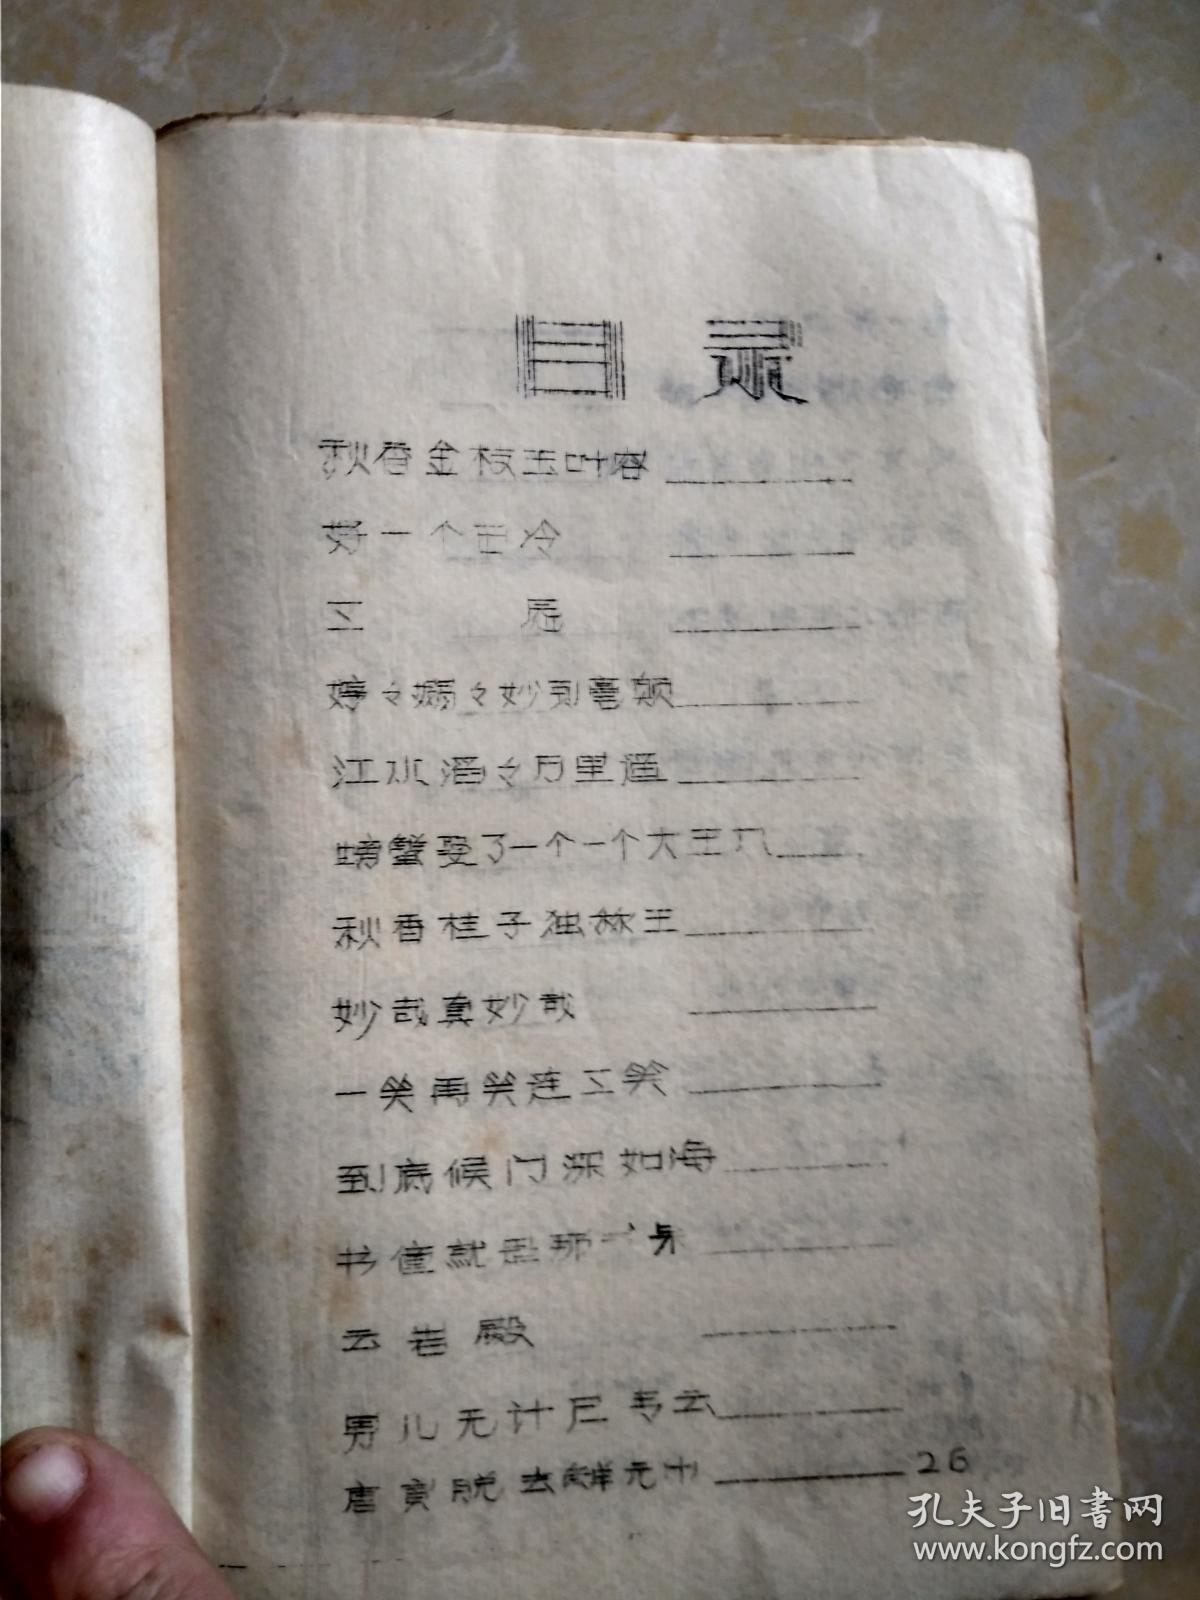 目录
秋香金枝玉叶容
好一个由冷
三
婷々嫣々妙到毫颠
江水滔々万里遥
螃蟹受了一个一个大王八
秋香桂子独林王
妙哉真妙哉
一笑再笑连三笑
到底候门深如海
书僮就是那一身
云岩殿
男儿无计
唐寅脱去解元巾 26
孔夫子旧书网
www.kongfz.com